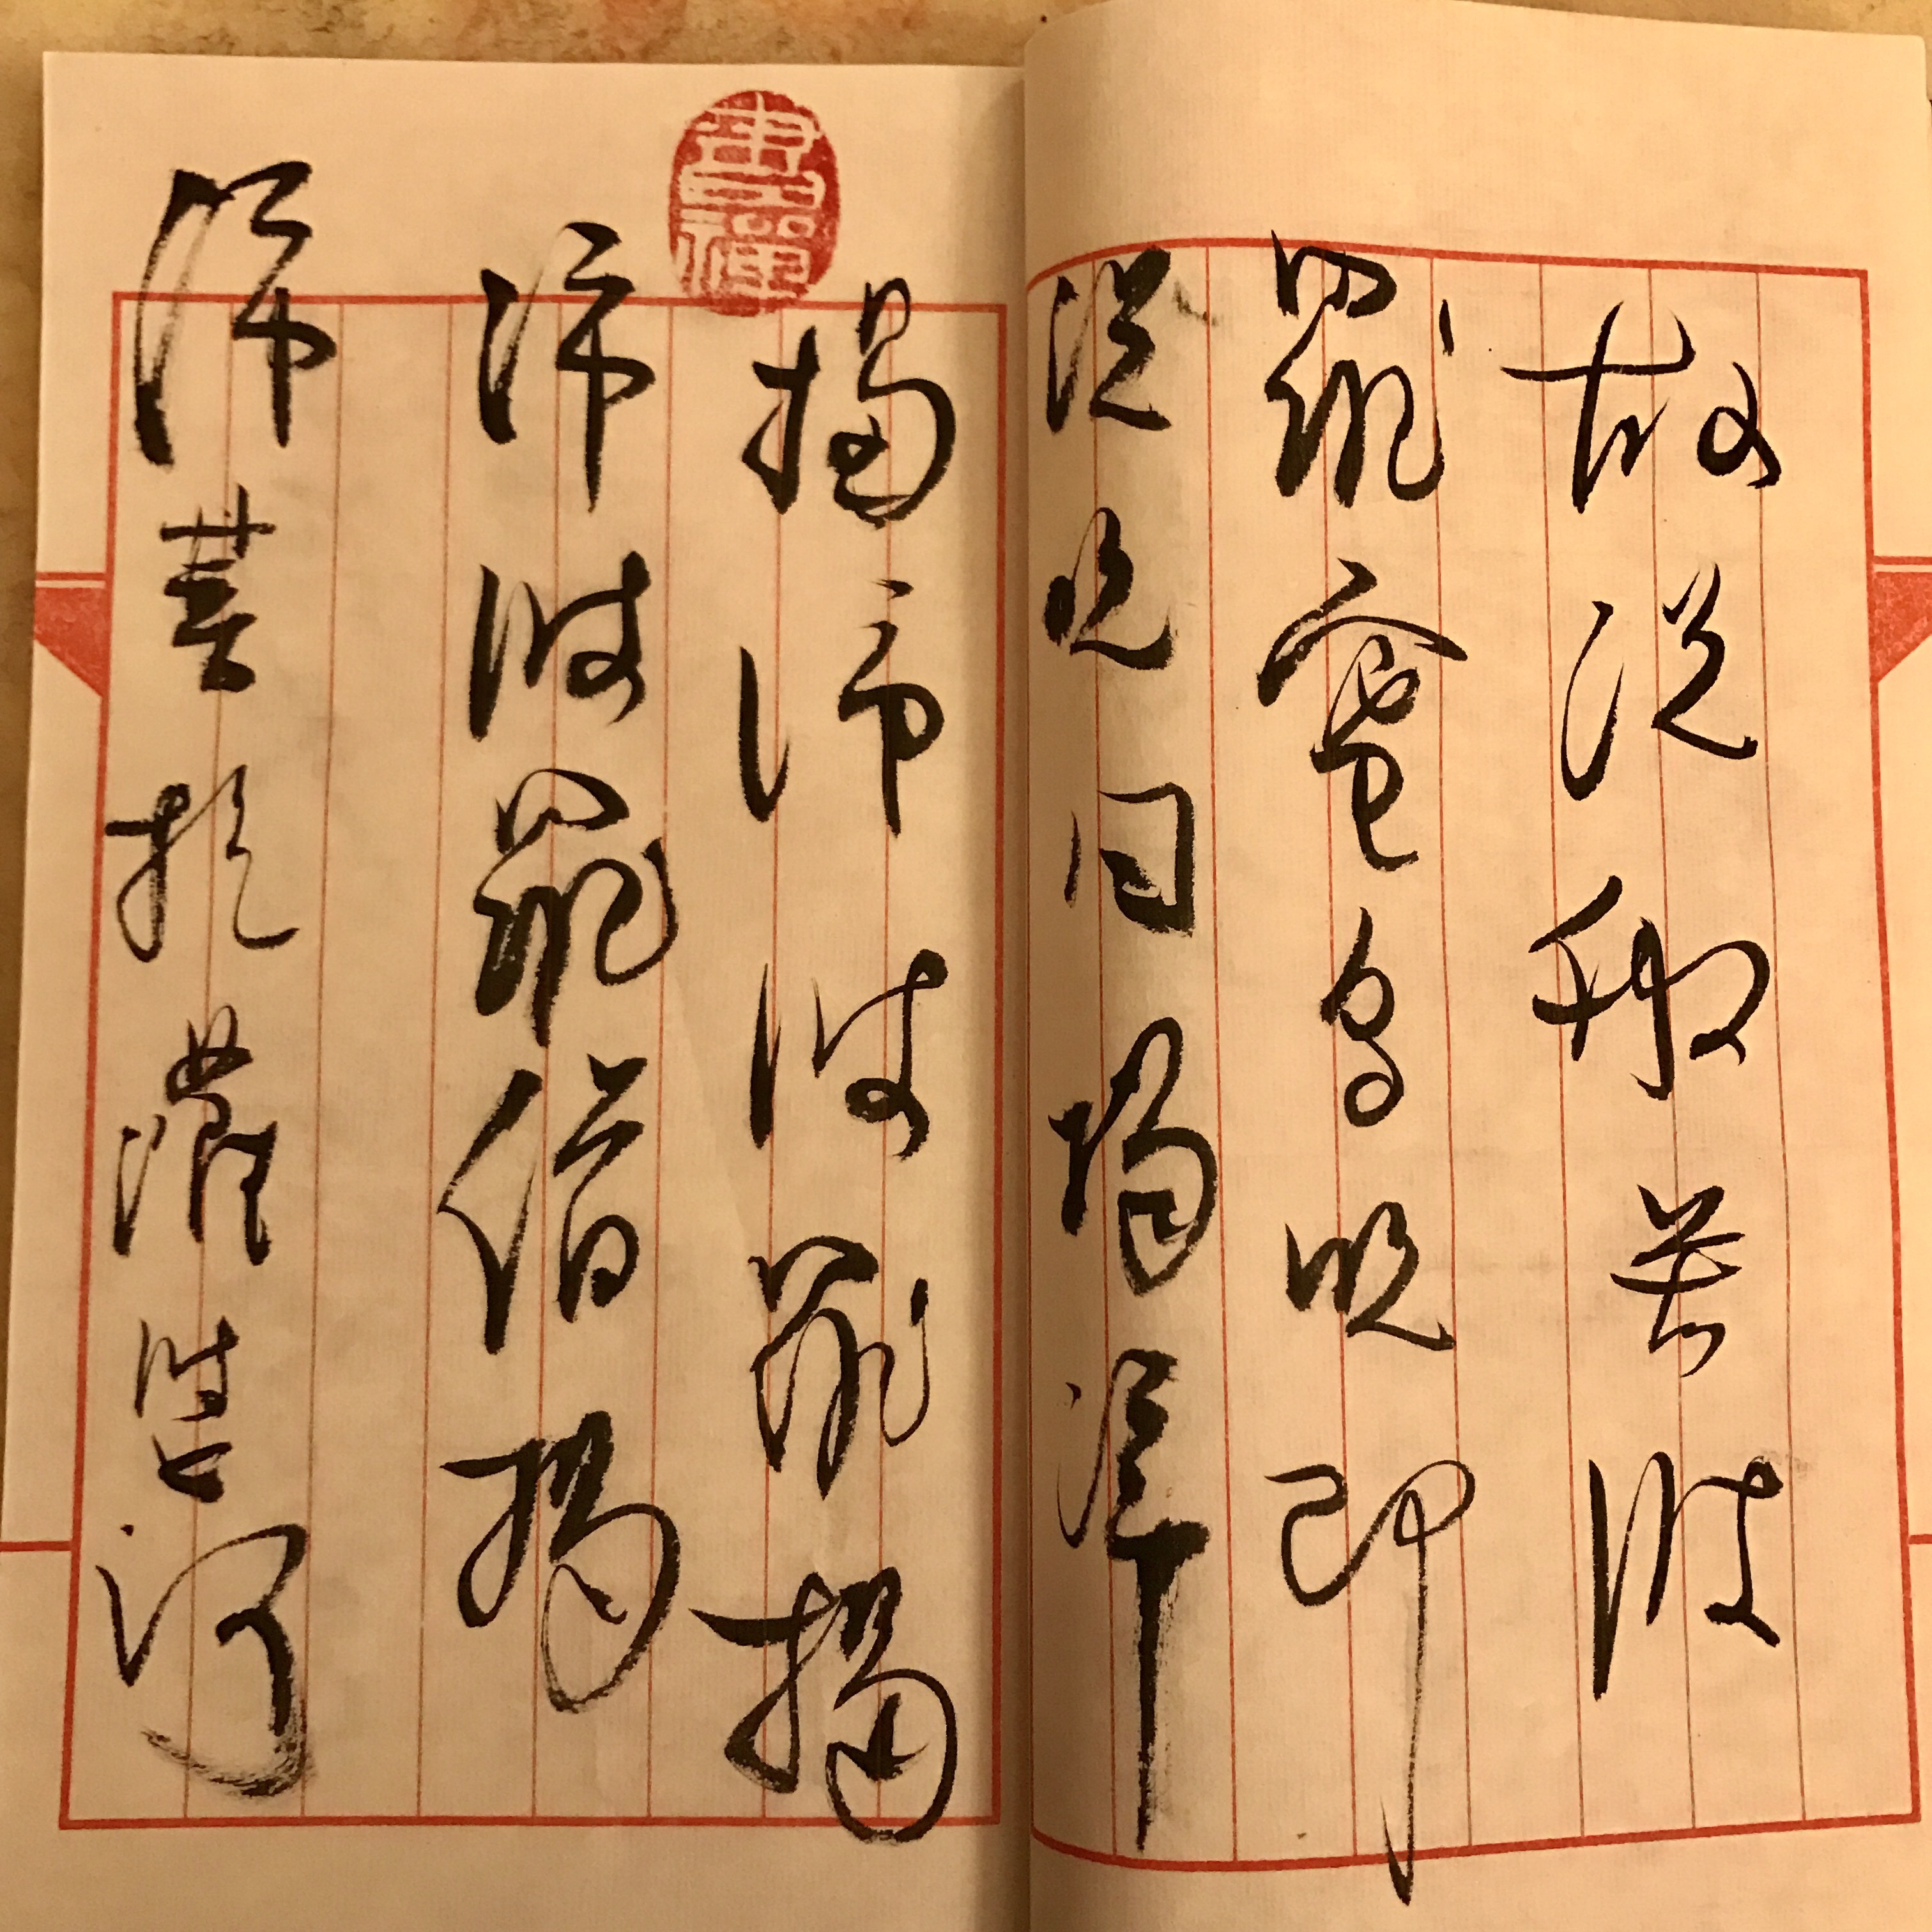 故說般若波
羅蜜多呪即
說咒曰揭諦
揭諦波羅揭
諦波羅僧揭
諦菩提薩婆訶
書禪